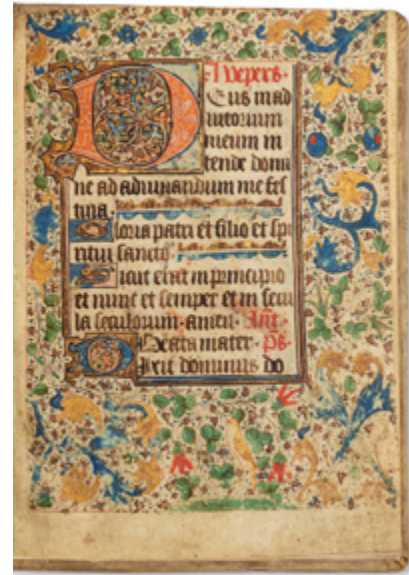 A vepers.
Eus in ad
iutorium
meum in
tende domi
ne ad adiuuandum me fes
tina.
Gloria patri et filio et spi
ritui sancto.
Sicut erat in principio
et nunc et semper et in secu
la seculorum. amen. Ant.
Beata mater. Ps
Dixit dominus do